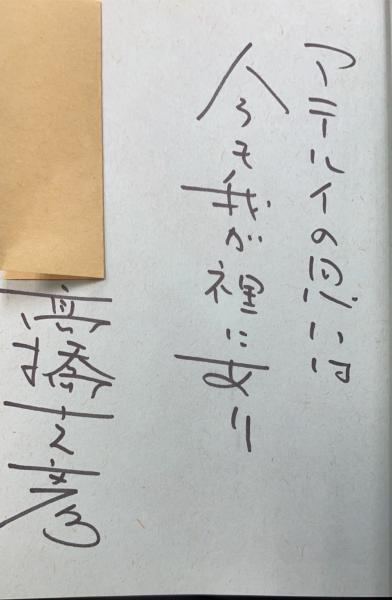 アテルイの思いは
今も我が裡にあり
高橋克彦